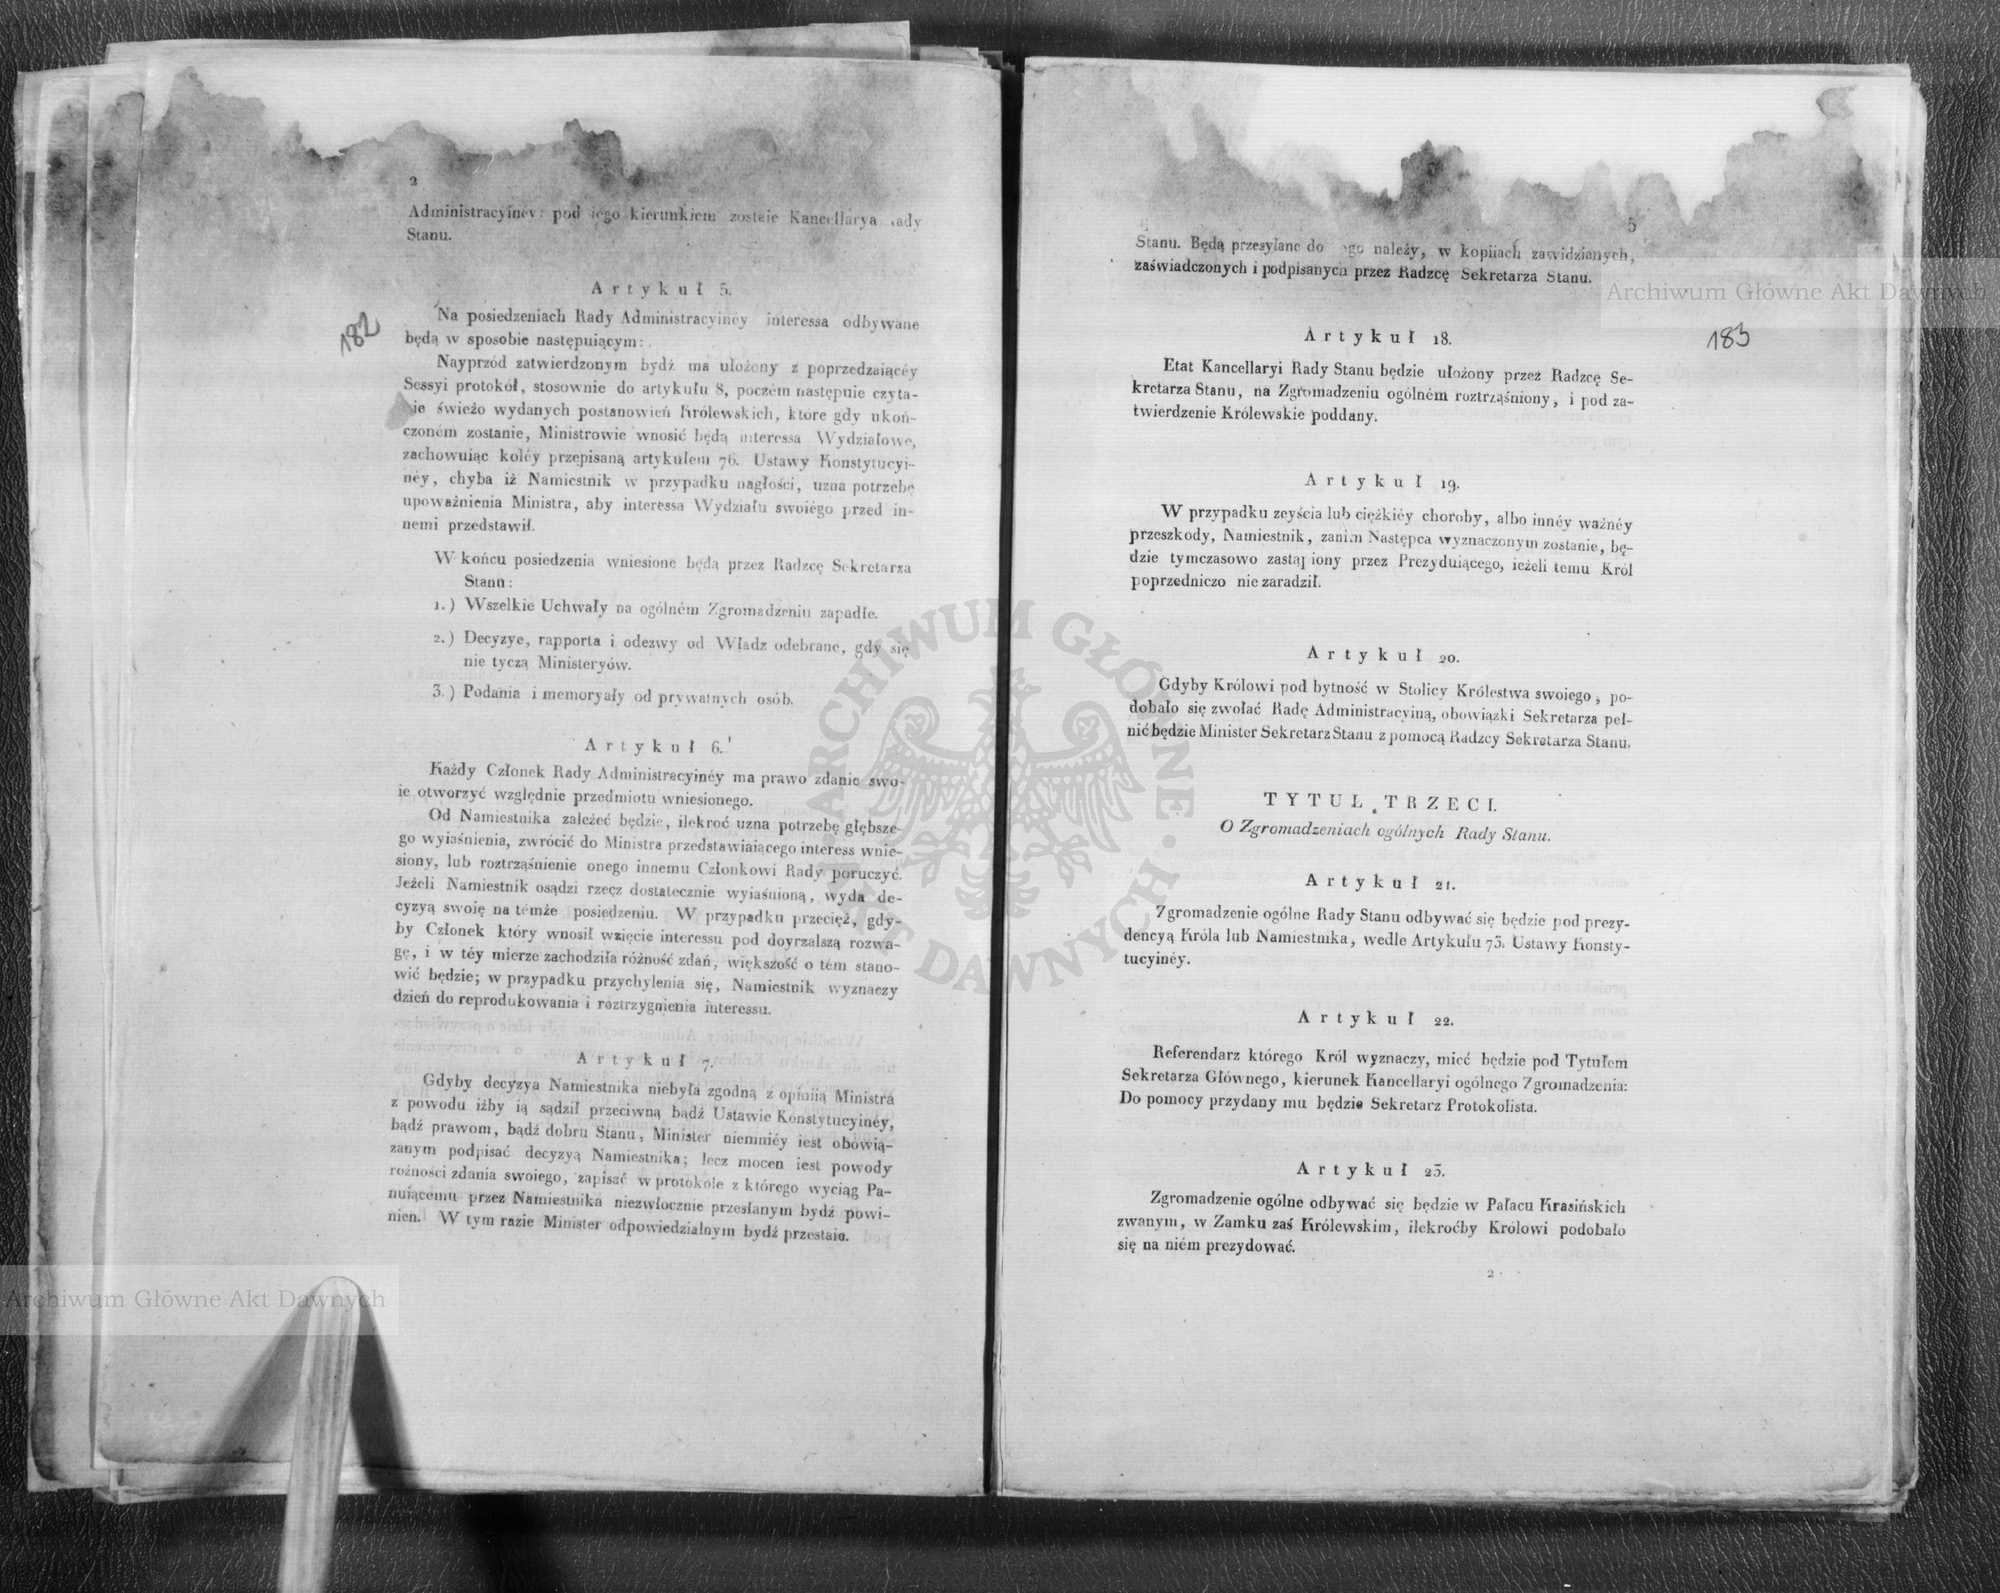 2
Administracyinéy: pod iego kierunkiem zostaie Kancellarya
Stanu.
Artykuł 5.
182
Na posiedzeniach Rady Administracyinéy interessa odbywane
będą w sposobie następuiącym:
Nayprzód zatwierdzonym bydź ma ułożony z poprzedzaiącéy
Sessyi protokół, stosownie do artykułu 8, poczém następuie czyta-
nie świeżo wydanych postanowień Królewskich, które gdy ukoń-
czoném zostanie, Ministrowie wnosić będą interessa Wydziałowe,
zachowuiąc koléy przepisaną artykułem 76. Ustawy Konstytucyi-
néy, chyba iż Namiestnik w przypadku nagłości, uzna potrzebę
upoważnienia Ministra, aby interessa Wydziału swoiégo przed in-
nemi przedstawił.
W końcu posiedzenia wniesione będą przez Radzcę Sekretarza
Stanu:
1.) Wszelkie Uchwały na ogólném Zgromadzeniu zapadłe.
2.) Decyzye, rapporta i odezwy od Władz odebrane, gdy się
nie tyczą Ministeryów.
3.) Podania i memoryały od prywatnych osób.
Artykuł 6.
Każdy Członek Rady Administracyinéy ma prawo zdanie swo-
ie otworzyć względnie przedmiotu wniesionego.
Od Namiestnika zależeć będzie, ilekroć uzna potrzebę głębsze-
go wyiaśnienia, zwrócić do Ministra przedstawiaiącego interess wnie-
siony, lub roztrząśnienie onego innemu Członkowi Rady poruczyć.
Jeżeli Namiestnik osądzi rzecz dostatecznie wyiaśnioną, wyda de-
cyzyą swoię na témże posiedzeniu. W przypadku przecięż, gdy-
by Członek który wnosił wzięcie interessu pod doyrzalszą rozwa-
gę, i w téy mierze zachodziła różność zdań, większość o tém stano-
wić będzie; w przypadku przychylenia się, Namiestnik wyznaczy
dzień do reprodukowania i roztrzygnienia interessu.
Artykuł 7.
Gdyby decyzya Namiestnika niebyła zgodną z opiniią Ministra
z powodu iżby ią sądził przeciwną bądź Ustawie Konstytucyinéy,
bądź prawom, bądź dobru Stanu, Minister niemniéy iest obowią-
zanym podpisać decyzyą Namiestnika; lecz mocen iest powody
rożności zdania swoiego, zapisać w protokole z którego wyciąg Pa-
nuiącemu przez Namiestnika niezwłocznie przesłanym bydź powi-
nien. W tym razie Minister odpowiedzialnym bydź przestaie.
5
Stanu. Będą przesyłane do należy, w kopiiach zawidzianych,
zaświadczonych i podpisanych przez Radzcę Sekretarza Stanu.
183
Artykuł 18.
Etat Kancellaryi Rady Stanu będzie ułożony przez Radzcę Se-
kretarza Stanu, na Zgromadzeniu ogólném roztrząśniony, i pod za-
twierdzenie Królewskie poddany.
Artykuł 19.
W przypadku zeyścia lub ciężkiéy choroby, albo innéy ważnéy
przeszkody, Namiestnik, zanim Następca wyznaczonym zostanie, bę-
dzie tymczasowo zastąpiony przez Prezyduiącego, ieżeli temu Król
poprzedniczo nie zaradził.
Artykuł 20.
Gdyby Królowi pod bytność w Stolicy Królestwa swoiego, po-
dobało się zwołać Radę Administracyiną, obowiązki Sekretarza peł-
nić będzie Minister Sekretarz Stanu z pomocą Radzcy Sekretarza Stanu.
TYTUŁ TRZECI.
O Zgromadzeniach ogólnych Rady Stanu.
Artykuł 21.
Zgromadzenie ogólne Rady Stanu odbywać się będzie pod prezy-
dencyą Króla lub Namiestnika, wedle Artykułu 73. Ustawy Konsty-
tucyinéy.
Artykuł 22.
Referendarz którego Król wyznaczy, mieć będzie pod Tytułem
Sekretarza Głównego, kierunek Kancellaryi ogólnego Zgromadzenia:
Do pomocy przydany mu będzie Sekretarz Protokolista.
Artykuł 23.
Zgromadzenie ogólne odbywać się będzie w Pałacu Krasińskich
zwanym, w Zamku zaś Królewskim, ilekroćby Królowi podobało
się na niém prezydować.
2
Archiwum Główne Akt Dawnych
Archiwum Główne Akt Dawnych
ARCHIWUM GŁÓWNE
AKT DAWNYCH